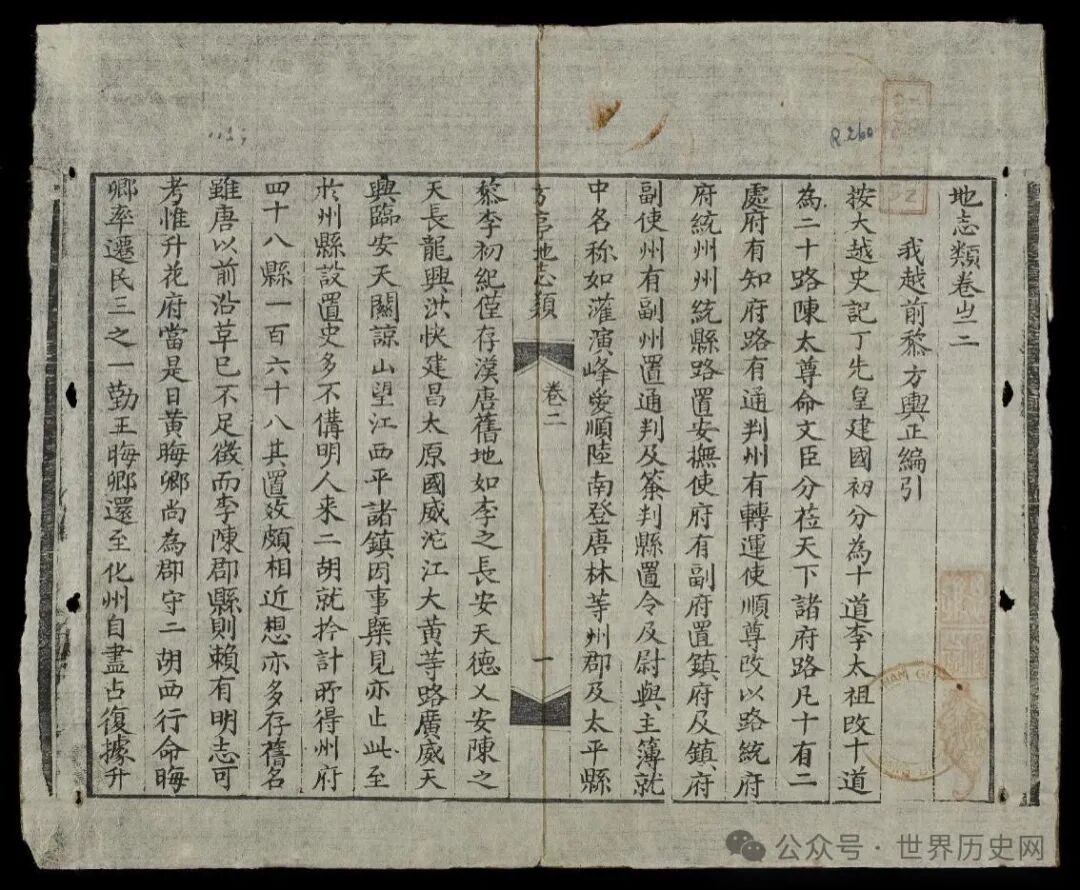 地志類卷之二
我越前黎方輿正編引
按大越史記丁先皇建國初分為十道李太祖改十道
為二十路陳太尊命文臣分莅天下諸府路凡十有二
處府有知府路有通判州有轉運使順尊改以路統府
府統州州統縣路置安撫使府有副府置鎮府及鎮府
副使州有副州置通判及簽判縣置令及尉與主簿就
中名称如灌演峰愛順陸南登唐林等州郡及太平縣
地志類 卷二 一
黎李初紀僅存漢唐舊地如李之長安天德乂安陳之
天長龍興洪快建昌太原國威沱江大黃等路廣威天
興臨安天關諒山望江西平諸鎮因事槩見亦止此至
於州縣設置史多不俻明人来二胡就擒計所得州府
四十八縣一百六十八其置效頗相近想亦多存舊名
雖唐以前沿革已不足徵而李陳郡縣則賴有明志可
考惟升花府當是日黃晦卿尚為郡守二胡西行命晦
卿率遷民三之一勤王晦卿還至化州自盡占復據升
R.260
公众号 · 世界历史网